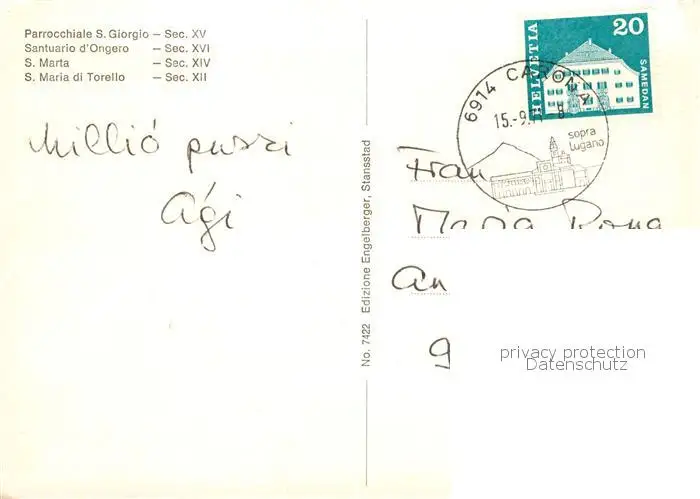 Parrocchiale S. Giorgio – Sec. XV
Santuario d'Ongero – Sec. XVI
S. Marta – Sec. XIV
S. Maria di Torello – Sec. XII
Millió puszi
Ági
No. 7422 Edizione Engelberger, Stansstad
HELVETIA
20
SAMEDAN
6914 CARONA
15.-9.
8
sopra
Lugano
Frau
Maria
An
9
privacy protection
Datenschutz